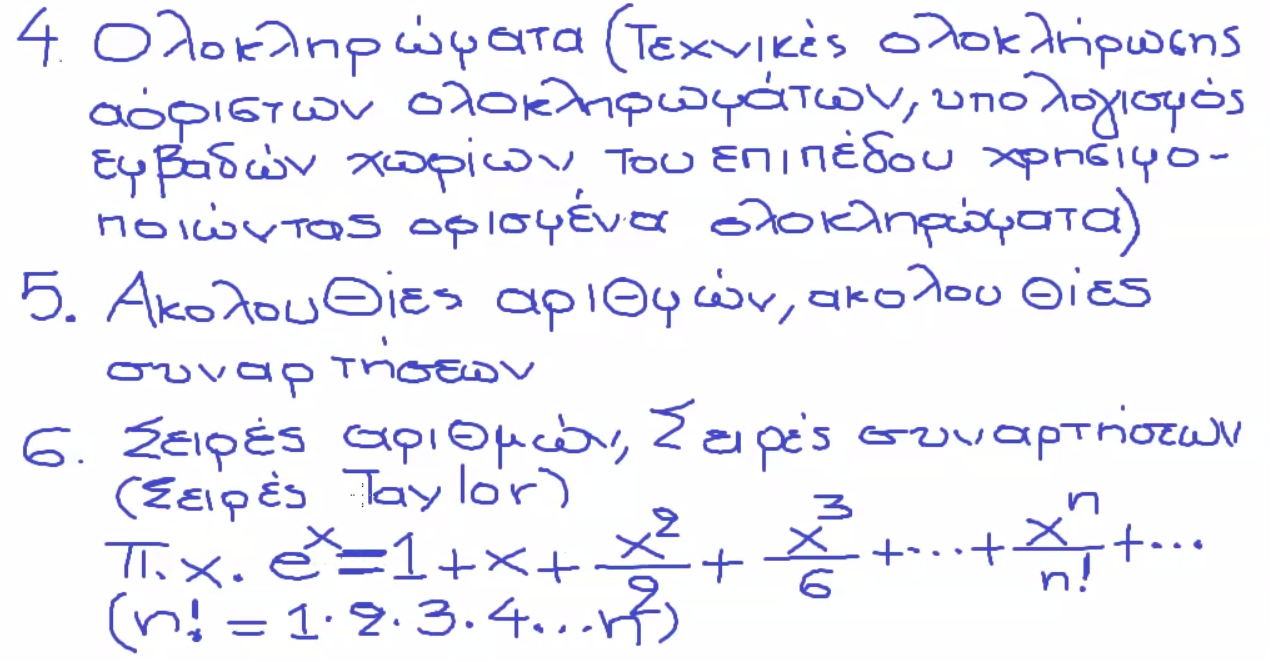 4. Ολοκληρώματα (Τεχνικές ολοκλήρωσης
αόριστων ολοκληρωμάτων, υπολογισμός
εμβαδών χωρίων του επιπέδου χρησιμο-
ποιώντας ορισμένα ολοκληρώματα)
5. Ακολουθίες αριθμών, ακολουθίες
συναρτήσεων
6. Σειρές αριθμών, Σειρές συναρτήσεων
(Σειρές Taylor)
π.χ. e^x = 1 + x + x^2/2 + x^3/6 + ... + x^n/n! + ...
(n! = 1·2·3·4...n)